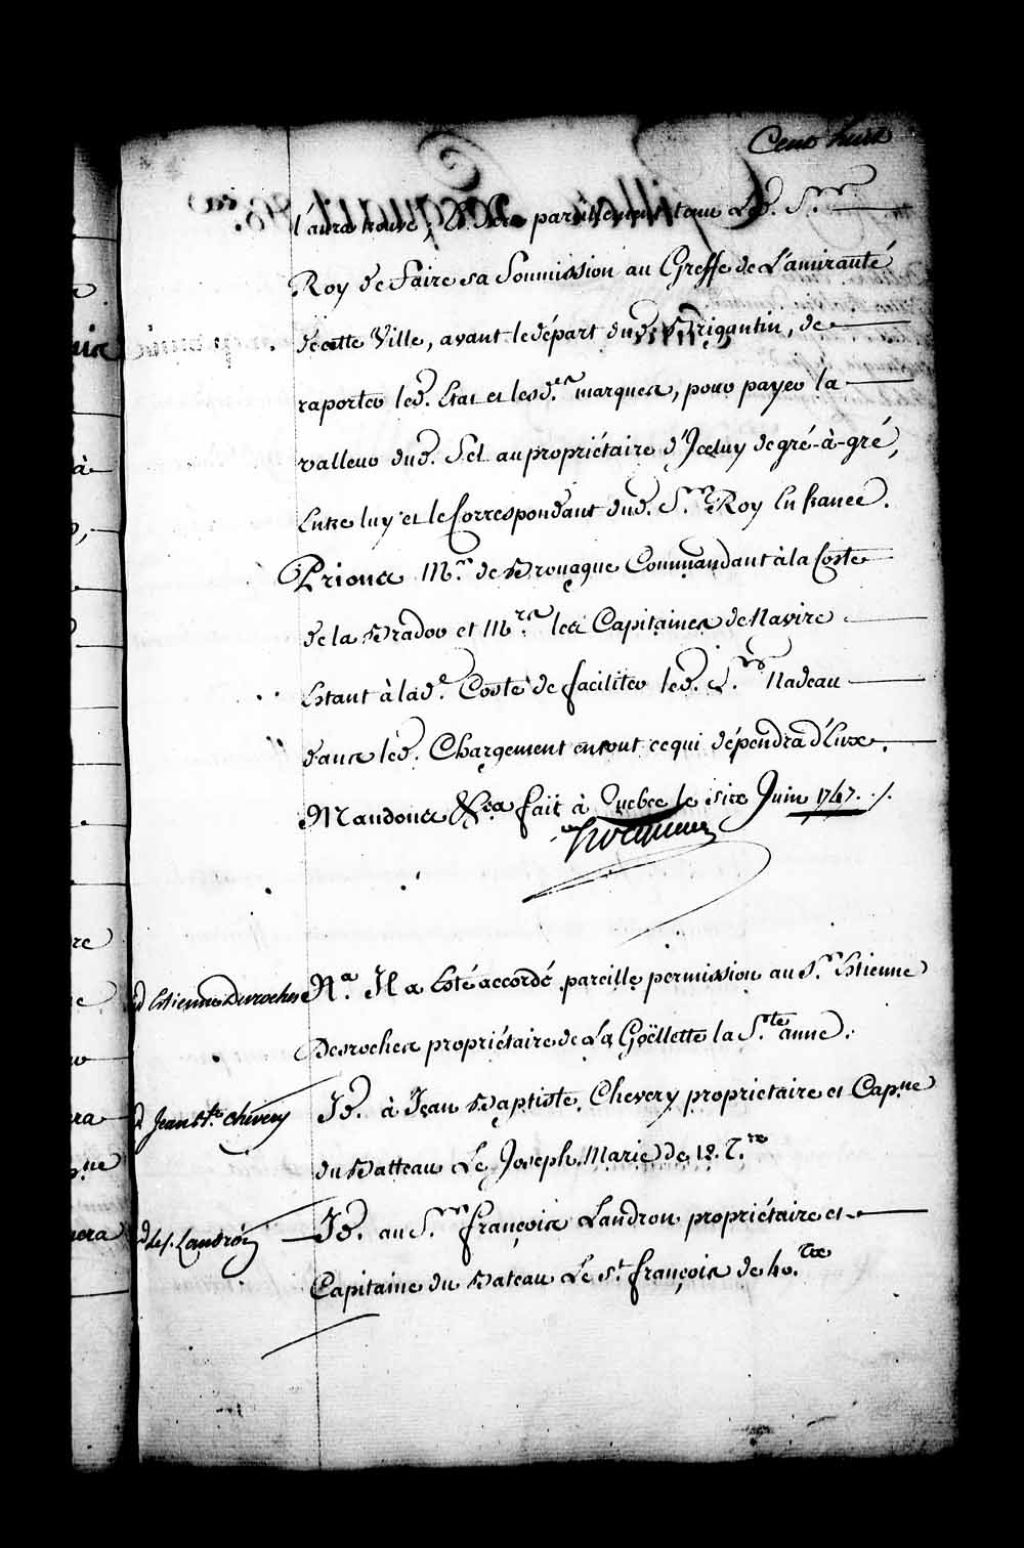 Cent huit
l'aura trouvé, Et sera pareillement tenu Led. S.r
Roy de faire sa Soumission au Greffe de L'amirauté
de cette Ville, avant le départ dud. Brigantin, de
raporter led. Etat et lesd.es marques, pour payer la
valleur dud. Sel au propriétaire d'Iceluy de gré-à-gré,
Entre luy et le Correspondant dud. S.r Roy En france.
Prions M.r de Brouague Commandant à la Coste
de la Brador et M.rs les Capitaines de Navire
Estant à lad.e Coste de faciliter led. S.r Nadeau
dans led. Chargement en tout ce qui dépendra d'Eux.
Mandons &ca fait à Quebec le six Juin 1747. /.
hocquart
d Estienne Desroches
N.a Il a Esté accordé pareille permission au S.r Estienne
Desroches propriétaire de La Goëllette la S.te anne.
d Jean bt.e Chevery
Id. à Jean Baptiste Chevery propriétaire et Cap.ne
du Batteau Le Joseph Marie de 18. T.x
d Le s. Landron
Id. au S.r françois Landron propriétaire et
Capitaine du Bateau Le St françois de 40. Tx